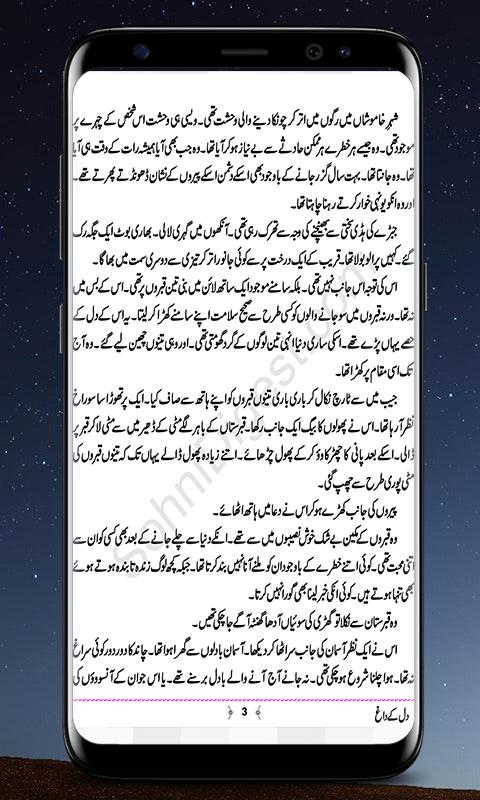 شہرِ خاموشاں میں رگوں میں اتر کر چونکا دینے والی وحشت تھی۔ ویسی ہی وحشت اس شخص کے چہرے پر
موجود تھی۔ وہ جیسے ہر خطرے ہر ممکن حادثے سے بے نیاز ہو کر آیا تھا۔ وہ جب بھی آیا ہمیشہ رات کے وقت ہی آیا
تھا۔ وہ جانتا تھا۔ بہت سال گزر جانے کے باوجود بھی اسکے دشمن اسکے پیروں کے نشان ڈھونڈتے پھرتے تھے۔
اور وہ انکو یونہی خوار کرتے رہنا چاہتا تھا۔
جبڑے کی ہڈی سختی سے بھینچنے کی وجہ سے تھرک رہی تھی۔ آنکھوں میں گہری لالی۔ بھاری بوٹ ایک جگہ رک
گئے۔ کہیں پر الو بولا تھا۔ قریب کے ایک درخت پر سے کوئی جانور اتر کر تیزی سے دوسری سمت میں بھاگا۔
اس کی توجہ اس جانب نہیں تھی۔ بلکہ سامنے موجود ایک ساتھ لائن میں بنی تین قبروں پر تھی۔ اس کے بس میں نہ
تھا۔ ورنہ قبروں میں سو جانے والوں کو کسی طرح سے صحیح سلامت اپنے سامنے کھڑا کر لیتا۔ یہ اس کے دل کے
حصے یہاں پڑے تھے۔ اسکی ساری دنیا انہی تین لوگوں کے گرد گھومتی تھی۔ اور وہی تینوں چھین لیے گئے۔ وہ آج
تک اسی مقام پر کھڑا تھا۔
جیب میں سے ٹارچ نکال کر باری باری تینوں قبروں کو اپنے ہاتھ سے صاف کیا۔ ایک پر تھوڑا سا سوراخ
نظر آ رہا تھا۔ اس نے پھولوں کا بیگ ایک جانب رکھا۔ قبرستان کے باہر لگے مٹی کے ڈھیر میں سے مٹی لا کر قبر پر
ڈالی۔ اسکے بعد پانی کا چھڑکاؤ کر کے پھول چڑھائے۔ اتنے زیادہ پھول ڈالے یہاں تک کہ تینوں قبروں کی
مٹی پوری طرح سے چھپ گئی۔
پیروں کی جانب کھڑے ہو کر اس نے دعا میں ہاتھ اٹھائے۔
وہ قبروں کے مکین بے شک خوش نصیبوں میں سے تھے۔ انکے دنیا سے چلے جانے کے بعد بھی کسی کو ان سے
اتنی محبت تھی۔ کوئی اتنے خطرے کے باوجود ان کو ملنے آنا نہیں بند کرتا تھا۔ جبکہ کچھ لوگ زندہ تابندہ ہوتے ہوئے
بھی تنہا ہوتے ہیں۔ کوئی انکی خبر لینا بھی گوارا نہیں کرتا۔
وہ قبرستان سے نکلا تو گھڑی کی سوئیاں آدھا گھنٹہ آگے جا چکی تھیں۔
اس نے ایک نظر آسمان کی جانب سر اٹھا کر دیکھا۔ آسمان بادلوں سے گھرا ہوا تھا۔ چاند کا دور دور کوئی سراغ
نہ تھا۔ ہوا چلنا شروع ہو چکی تھی۔ نہ جانے آج آنے والے بادل برسنے تھے۔ یا اس جوان کے آنسوؤں کی
دل کے داغ
3
SohniDigest.com